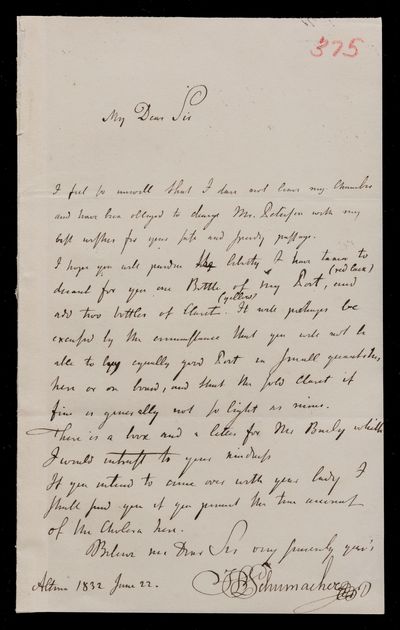 375
My Dear Sir
I feel so unwell that I dare not leave my Chamber
and have been obliged to charge Mr. Petersen with my
best wishes for your safe and speedy passage.
I hope you will pardon the liberty I have taken to
(red lack)
decant for you one Bottle of my Port, and
(yellow)
add two bottles of Claret. It will perhaps be
excused by the circumstance that you will not be
able to buy equally good Port in small quantities
here or on board, and that the sold Claret if
fine is generally not so light as mine.
There is a box and a letter for Mr Baily which
I would intrust to your kindness
If you intend to come over with your lady I
shall send you if you permit the true account
of the Cholera here.
Believe me Dear Sir very sincerely your's
Altona 1832 June 22.
Schumacher